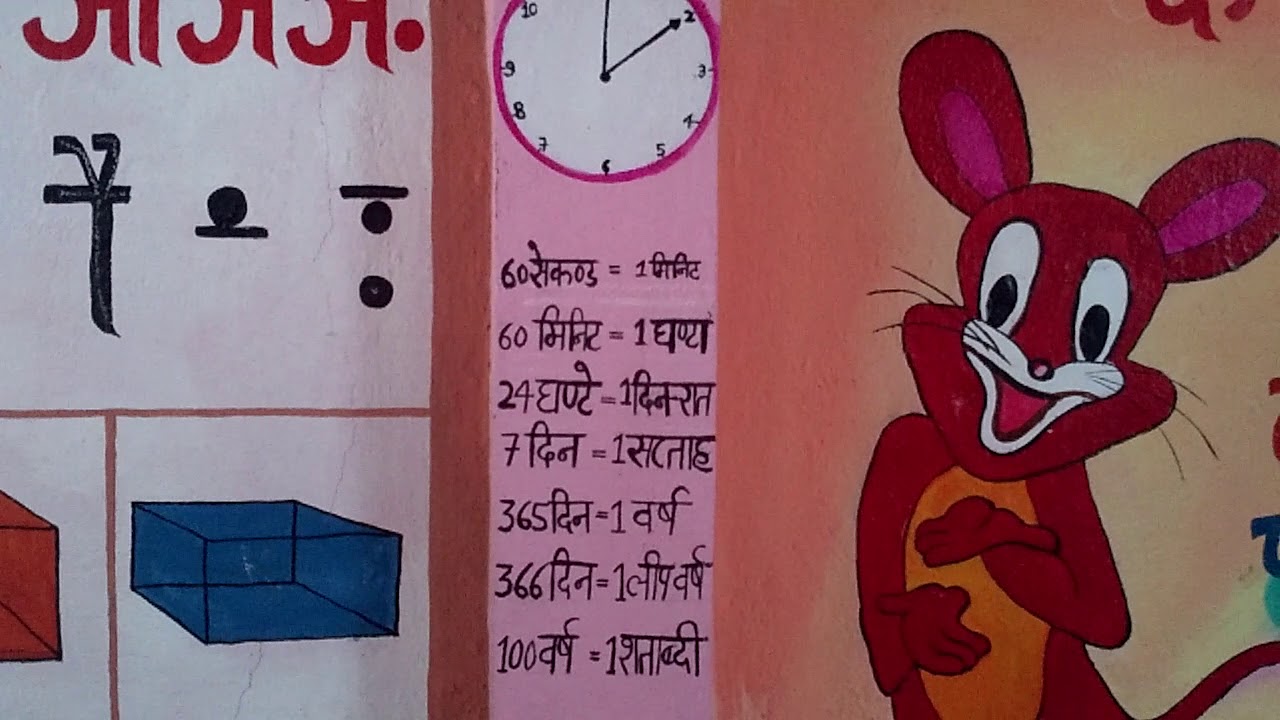 10
2
9
3
8
4
7
5
6
60 सेकण्ड = 1 मिनिट
60 मिनिट = 1 घण्टा
24 घण्टे = 1 दिन-रात
7 दिन = 1 सप्ताह
365 दिन = 1 वर्ष
366 दिन = 1 लीप वर्ष
100 वर्ष = 1 शताब्दी